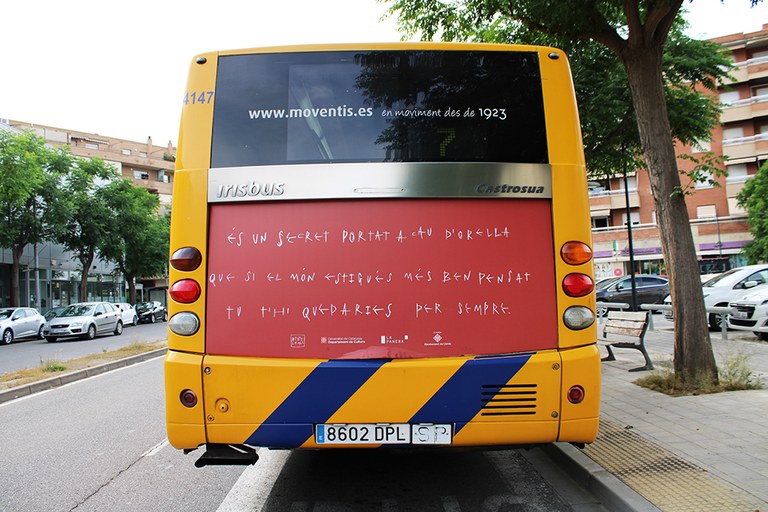 4147
www.moventis.es en moviment des de 1923
7
irisbus Castrosua
ÉS UN SECRET PORTAT A CAU D'ORELLA
QUE SI EL MÓN ESTIGUÉS MÉS BEN PENSAT
TU T'HI QUEDARIES PER SEMPRE.
Generalitat de Catalunya
Departament de Cultura
LA PANERA
8602 DPL SP